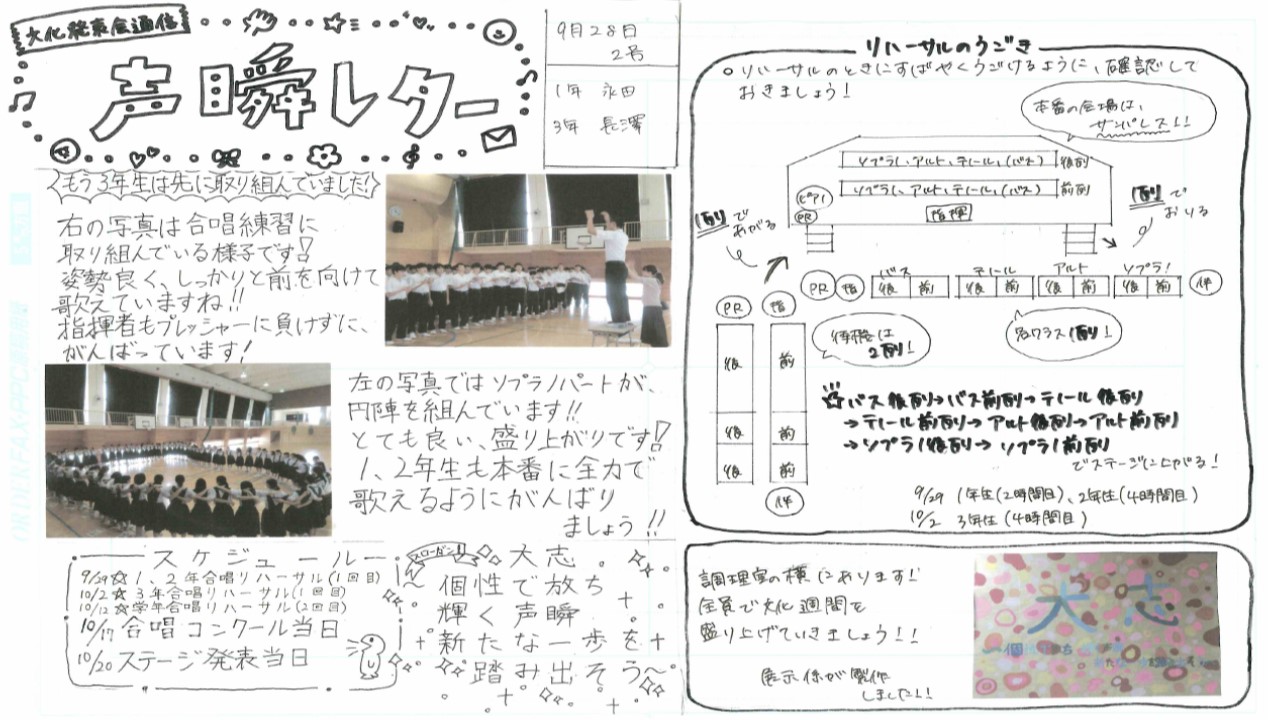 大化発表会通信
声瞬レター
9月28日
2号
1年 永田
3年 長澤
もう3年生は先に取り組んでいました!
右の写真は合唱練習に
取り組んでいる様子です!
姿勢良く、しっかりと前を向けて
歌えていますね!!
指揮者もプレッシャーに負けずに、
がんばっています!
左の写真ではソプラノパートが、
円陣を組んでいます!!
とても良い、盛り上がりです!
1、2年生も本番に全力で
歌えるようにがんばり
ましょう!!
スケジュール
9/29☆1、2年合唱リハーサル(1回目)
10/2☆3年合唱リハーサル(1回目)
10/12☆学年合唱リハーサル(2回目)
10/17合唱コンクール当日
10/20ステージ発表当日
スローガン!!
大志
個性で放ち
輝く声瞬
新たな一歩を
踏み出そう〜
リハーサルのうごき
○リハーサルのときにすばやくうごけるように、確認して
おきましょう!
本番の会場は、
サンパレス!!
ソプラノ、アルト、テノール、(バス) 後列
ソプラノ、アルト、テノール、(バス) 前列
ピアノ
PR
指揮
1列で
あがる
1列で
おりる
バス テノール アルト ソプラノ
PR 指 後 前 後 前 後 前 後 前 伴
PR 指
後 前
後 前
後 前
伴
待機は
2列!
各クラス1列!
☆バス後列→バス前列→テノール後列
→テノール前列→アルト後列→アルト前列
→ソプラノ後列→ソプラノ前列
でステージに上がる!
9/29 1年生(2時間目)、2年生(4時間目)
10/2 3年生(4時間目)
調理室の横にあります!
全員で大化週間を
盛り上げていきましょう!!
展示係が製作
しました!!
大志